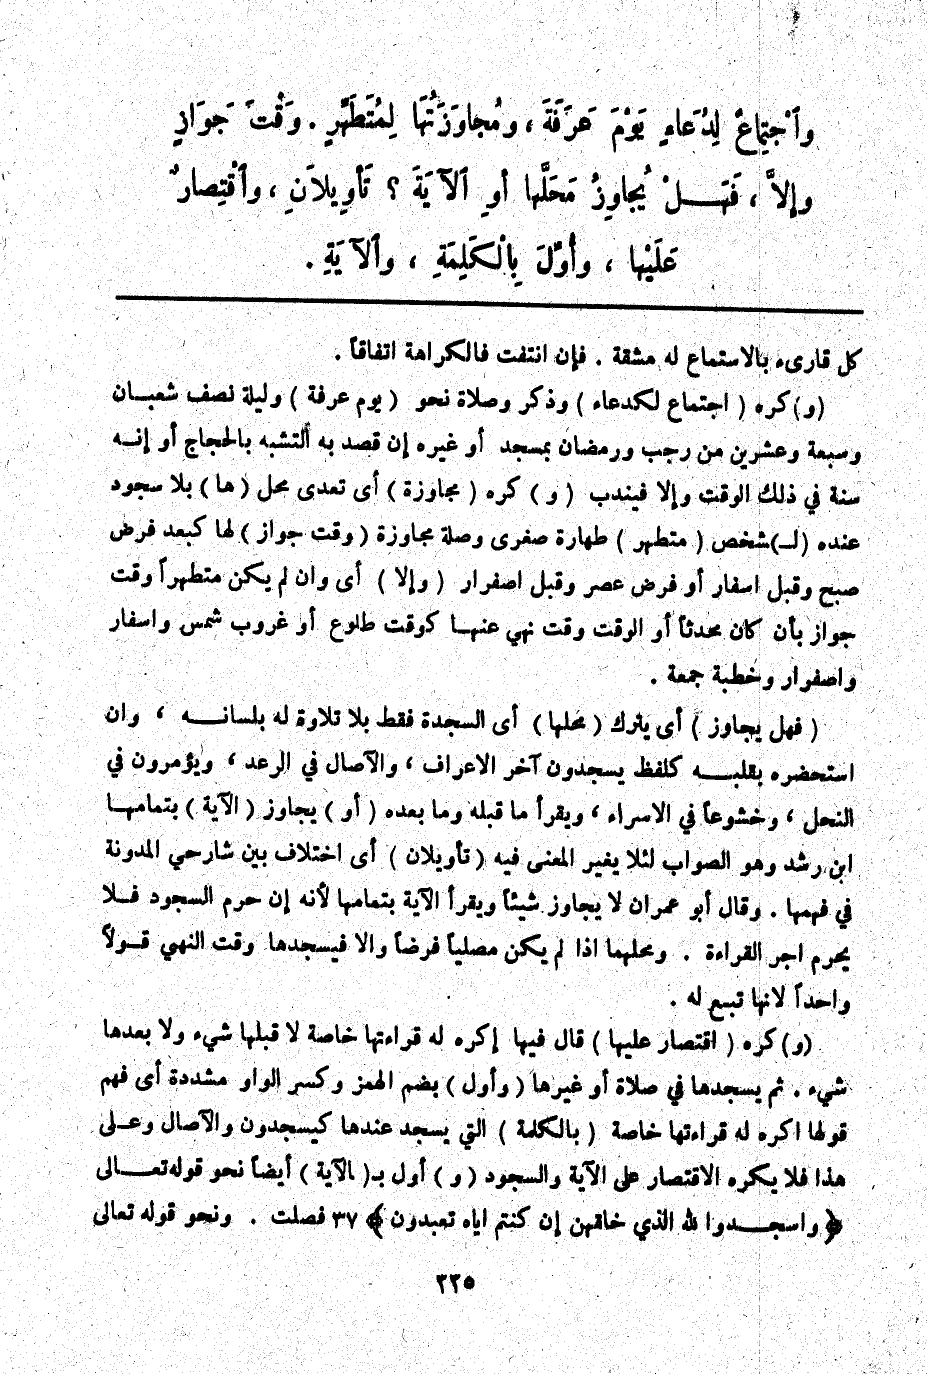 وَٱجْتِمَاعٌ لِدُعَاءٍ يَوْمَ عَرَفَةَ ، وَمُجاوَزَتُهَا لِمُتَطَهِّرٍ . وَقْتَ جَوَازٍ
وإلاَّ ، فَهَــلْ يُجاوِزُ مَحَلَّها أوِ ٱلآيَةَ ؟ تَأْوِيلاَنِ ، وٱقْتِصارٌ
عَلَيْها ، وأُوِّلَ بِالْكَلِمَةِ ، وٱلآيَةِ .
كل قارىء بالاستماع له مشقة . فإن انتفت فالكراهة اتفاقاً .
(و) كره ( اجتماع لكدعاء ) وذكر وصلاة نحو ( يوم عرفة ) وليلة نصف شعبـان
وسبعة وعشرين من رجب ورمضان بمسجد أو غيره إن قصد به ألتشبه بالحجاج أو إنــه
سنة في ذلك الوقت وإلا فيندب ( و ) كره ( مجاوزة ) أى تعدى محل ( ها ) بلا سجود
عنده (لـ)شخص ( متطهر ) طهارة صغرى وصلة مجاوزة ( وقت جواز ) لها كبعد فرض
صبح وقبل اسفار أو فرض عصر وقبل اصفرار ( وإلا ) أى وان لم يكن متطهراً وقت
جواز بأن كان محدثاً أو الوقت وقت نهي عنهـا كوقت طلوع أو غروب شمس واسفار
واصفرار وخطبة جمعة .
( فهل يجاوز ) أى يترك ( محلها ) أى السجدة فقط بلا تلاوة له بلسانــه ، وان
استحضره بقلبــه كلفظ يسجدون آخر الاعراف ، والآصال في الرعد ، ويؤمرون في
النحل ، وخشوعاً في الاسراء ، ويقرأ ما قبله وما بعده ( أو ) يجاوز ( الآية ) بتمامهـا
ابن رشد وهو الصواب لئلا يغير المعنى فيه ( تأويلان ) أى اختلاف بين شارحي المدونة
في فهمها . وقال أبو عمران لا يجاوز شيئاً ويقرأ الآية بتمامها لأنه إن حرم السجود فـلا
يحرم اجر القراءة . ومحلهما اذا لم يكن مصلياً فرضاً والا فيسجدها وقت النهي قـولاً
واحداً لانها تبع له .
(و) كره ( اقتصار عليها ) قال فيها إكره له قراءتها خاصة لا قبلها شيء ولا بعدها
شيء . ثم يسجدها في صلاة أو غيرها ( وأول ) بضم الهمز وكسر الواو مشددة أى فهم
قولها اكره له قراءتها خاصة ( بالكلمة ) التي يسجد عندها كيسجدون والآصال وعـلى
هذا فلا يكره الاقتصار على الآية والسجود ( و ) أول بـ( الآية ) أيضاً نحو قوله تعــالى
﴿ واسجــدوا لله الذي خلقهن إن كنتم اياه تعبدون ﴾ ٣٧ فصلت . ونحو قوله تعالى
٢٢٥